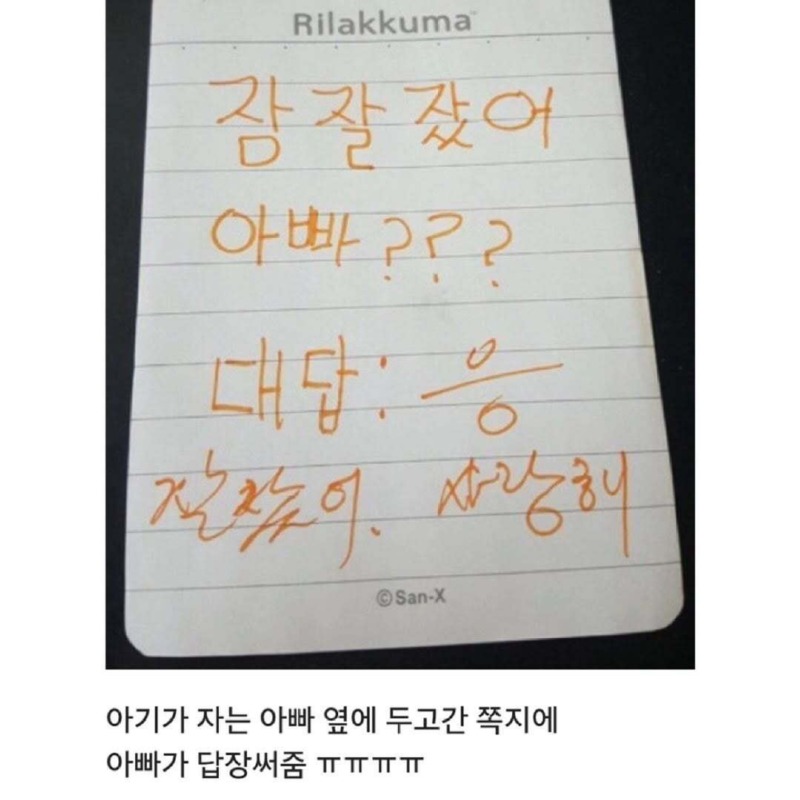 Rilakkuma
잠 잘 잤어
아빠???
대답: 응
잘잤어. 사랑해
©San-X
아기가 자는 아빠 옆에 두고간 쪽지에
아빠가 답장써줌 ㅠㅠㅠㅠ